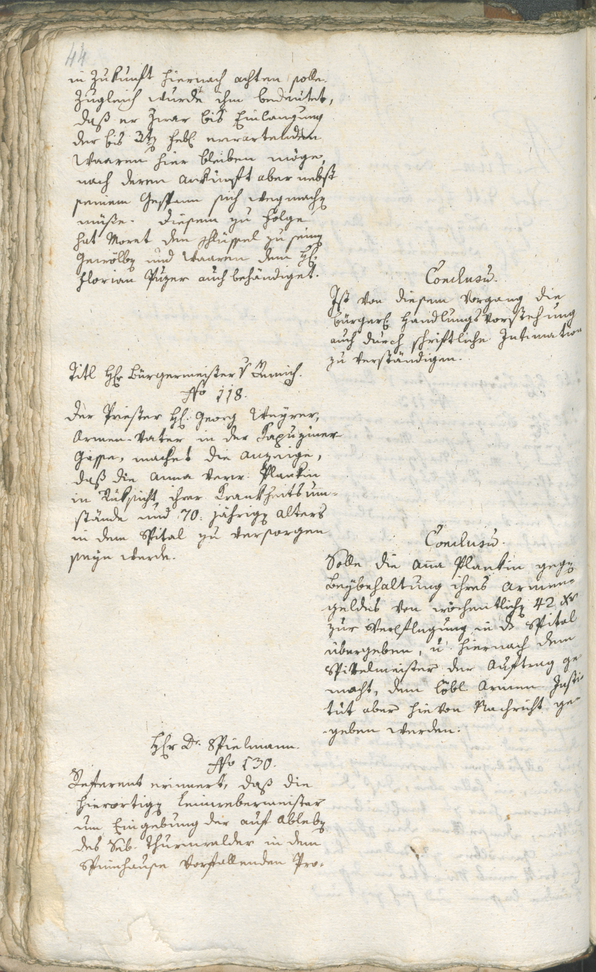 44
in Zukunft hiernach achten solle.
Zugleich wurde ihm bedeutet,
daß er zwar bis Einlangung
der bis erwartenden
Waaren hier bleiben möge,
nach deren Ankunft aber nebst
seinem Gespann sich
müße. Diesem zu Folge
hat Moret den Schlüssel zu seinem
Gewölb und Waaren dem H:
Florian auch behändiget.
Conclusum.
Ist von diesem Vorgang die
bürgerl. Handlungs Vorstehung
auch durch schriftliche Intimation
zu verständigen.
Titl Hr Bürgermeister
No 118.
Der Priester H: Georg Weyrer,
Armen-Vater in der Kapuziner
Gasse, machet die Anzeige,
daß die Anna Plankin
in Rüksicht ihrer Krankheits um-
stände und 70. jährigen Alters
in dem Spital zu versorgen
seyn werde.
Conclusum.
Solle die Aña Plankin gegen
Beybehaltung ihres Armen-
geldes von wöchentlich 42 xr
zur Verpflegung in das Spital
übergeben, u: hiernach dem
Spittelmeister der Auftrag ge-
macht, dem löbl Armen Insti-
tut aber hievon Nachricht ge-
geben werden.
Hr Dr. Spielmann.
No 130.
Referent erinnert, daß die
hierortigen Leinwebermeister
um Eingebung der auf Ableben
des Seb. Thurnwalder in dem
Spinnhause vorfallenden Pro-